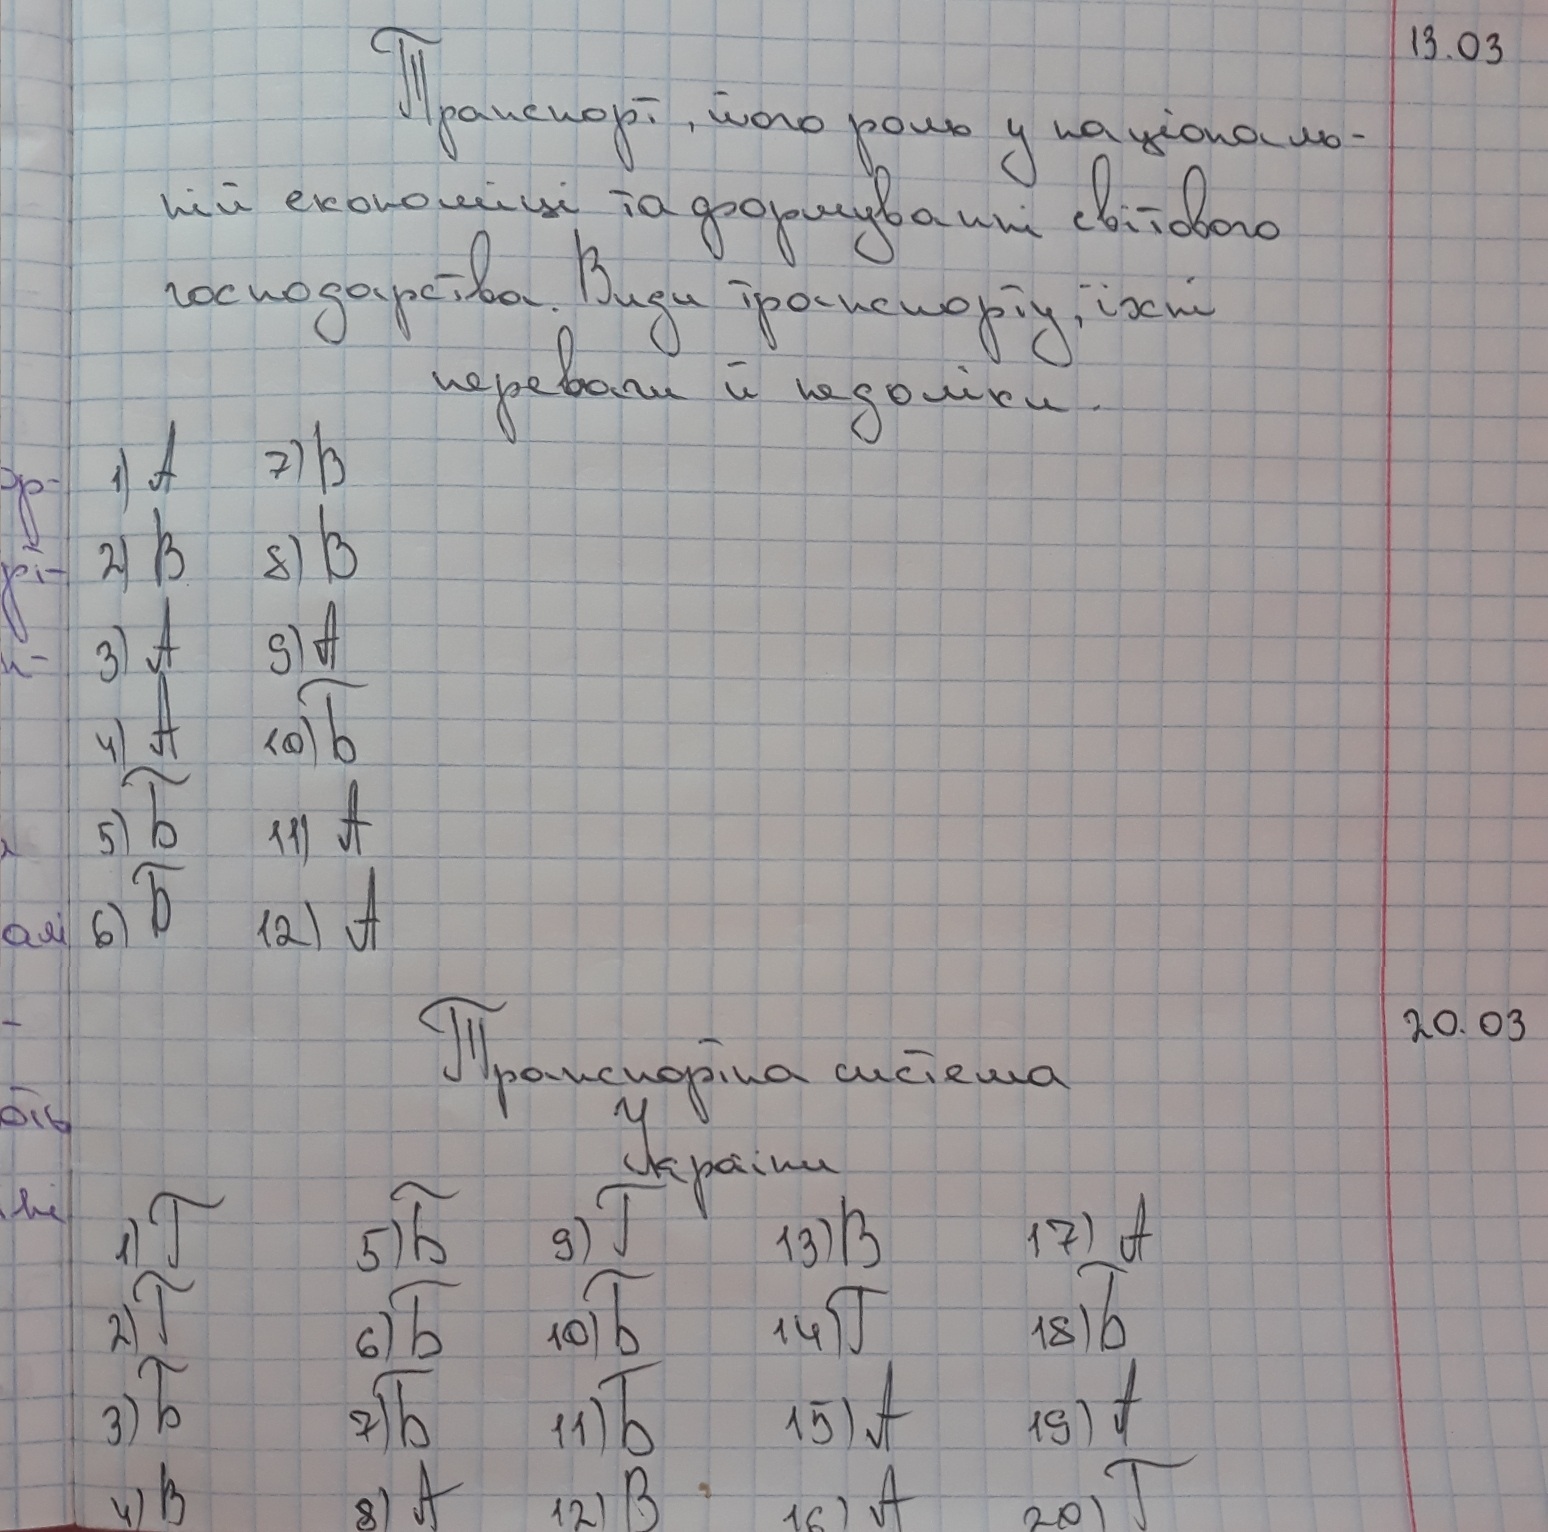 13.03
Транспорт, його роль у національ-
ній економіці та формуванні світового
господарства. Види транспорту, їхні
переваги й недоліки.
1) А 7) В
2) В 8) В
3) А 9) А
4) А 10) Б
5) Б 11) А
6) Б 12) А
20.03
Транспортна система
України
1) Г 5) Б 9) Г 13) В 17) А
2) Г 6) Б 10) Б 14) Г 18) Б
3) Б 7) Б 11) Б 15) А 19) А
4) В 8) А 12) В 16) А 20) Г